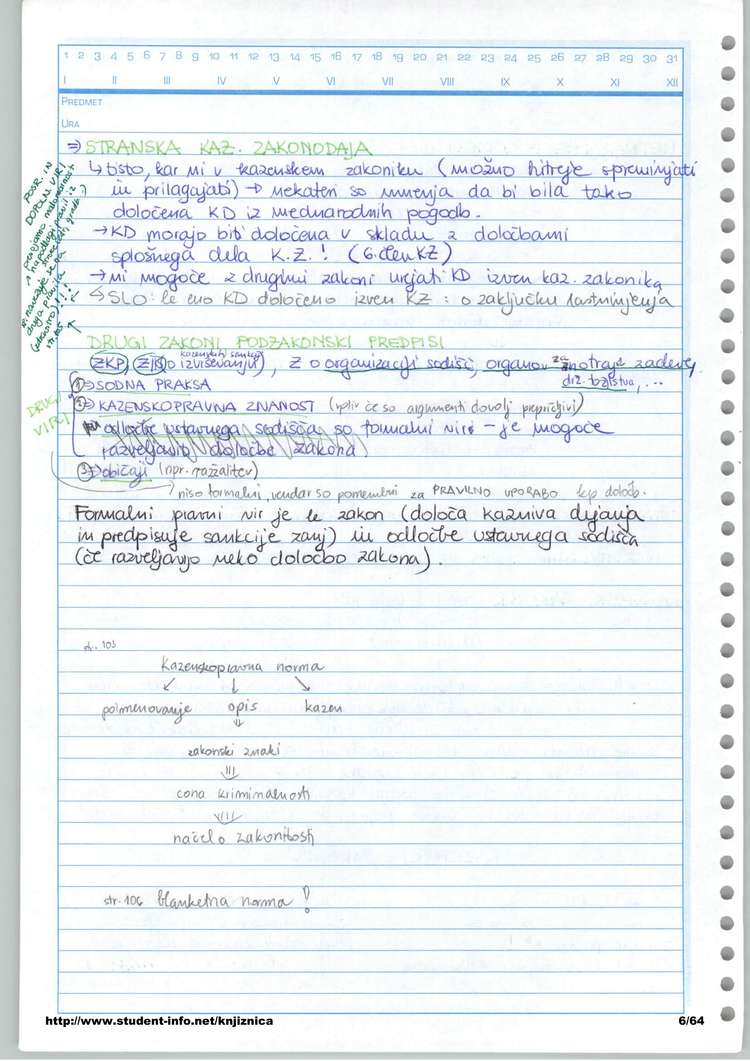 1 2 3 4 5 6 7 8 9 10 11 12 13 14 15 16 17 18 19 20 21 22 23 24 25 26 27 28 29 30 31
I II III IV V VI VII VIII IX X XI XII
PREDMET
URA
⇒ STRANSKA KAZ. ZAKONODAJA
↳ tisto, kar ni v kazenskem zakoniku (možno hitreje spreminjati
in prilagajati) → nekateri so mnenja da bi bila tako
določena KD iz mednarodnih pogodb.
→ KD morajo biti določena v skladu z določbami
splošnega dela K.Z.! (6.člen KZ)
→ ni mogoče z drugimi zakoni urejati KD izven kaz. zakonika
↳ SLO: le eno KD določeno izven KZ: o zaključku lastninjenja
POSR. IN
DOPOLN. VIRI
DRUGI ZAKONI, PODZAKONSKI PREDPISI
kazenskih sankcij
ZKP, ZIKS (o izvrševanju), Z o organizaciji sodišč, organov za notranje zadeve,
drž. tožilstva, ...
DRUGI
VIRI
① ⇒ SODNA PRAKSA
② ⇒ KAZENSKOPRAVNA ZNANOST (vpliv če so argumenti dovolj prepričljivi)
odločbe ustavnega sodišča so formalni viri - je mogoče
razveljaviti določbe zakona
③ ⇒ običaji (npr. razžalitev)
niso formalni, vendar so pomembni za PRAVILNO UPORABO kzp določb.
Formalni pravni vir je le zakon (določa kazniva dejanja
in predpisuje sankcije zanj) in odločbe ustavnega sodišča
(če razveljavijo neko določbo zakona).
103
Kazenskopravna norma
poimenovanje opis kazen
zakonski znaki
cona kriminalnosti
načelo zakonitosti
str. 106 blanketna norma!
http://www.student-info.net/knjiznica
6/64